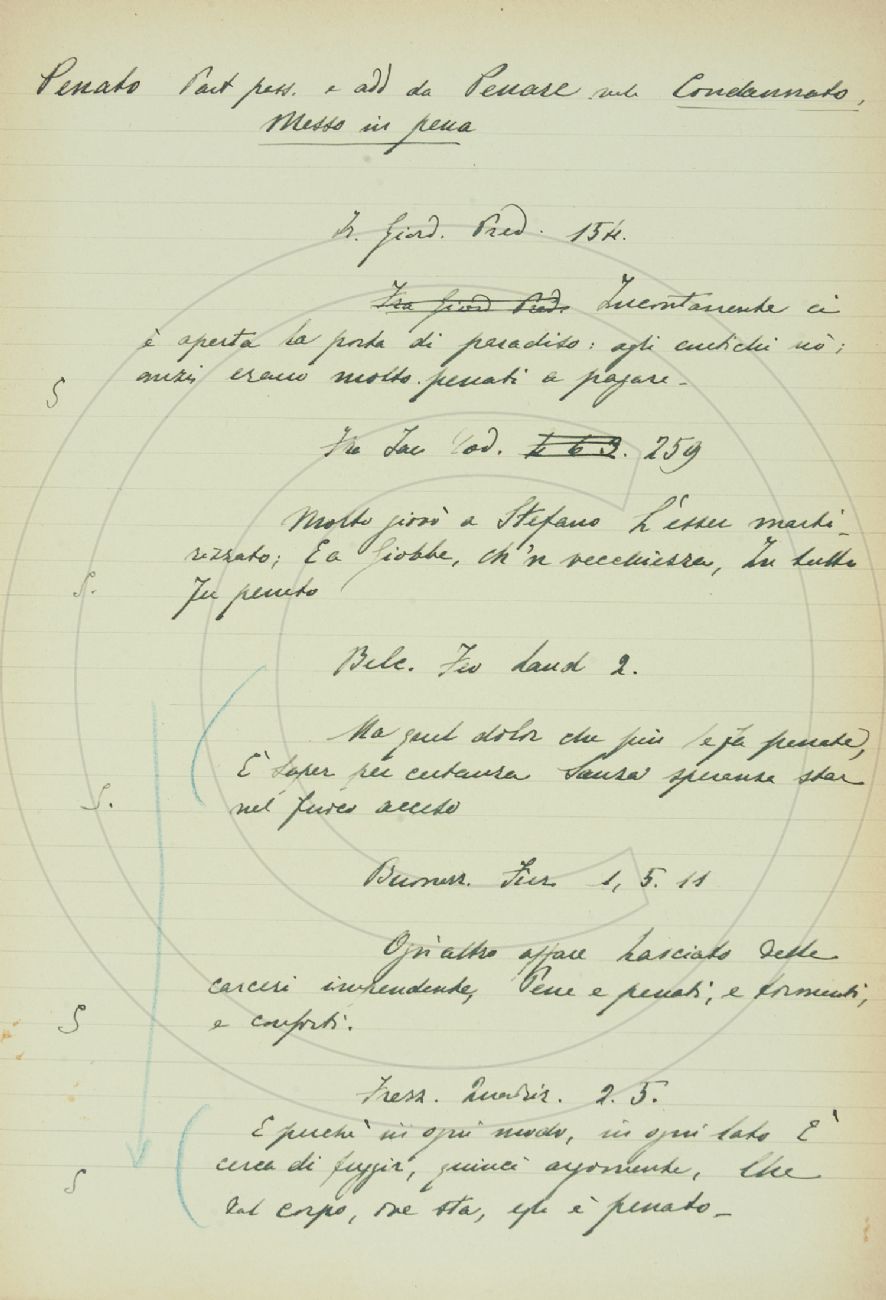 Penato Part pass. e add da Penare vale Condannato,
Messo in pena
Fr. Giord. Pred. 154.
Fra Giord Pred. Incontanente ci
è aperta la porta di paradiso: agli antichi nò;
anzi erano molto penati a pagare -
S
Fra Jac Tod. 259
Molto giovò a Stefano L'esser marti-
rizzato; E a Giobbe, ch'n vecchiezza, In tutto
fu penato
S.
Belc. Feo Laud 2.
Ma quel dolor che più le fa penate,
E' saper per certanza Sanza speranza star
nel fuoco acceso
S.
Buonarr. Fier. 1, 5. 11
Ogni altro affare Lasciato delle
carceri imprendente, Pene e penati, e tormenti,
e conforti.
S
Frezz. Quadrir. 2. 5.
E perchè in ogni modo, in ogni lato E'
cerca di fuggir, quinci argomenta, Che
dal corpo, ove sta, egli è penato -
S